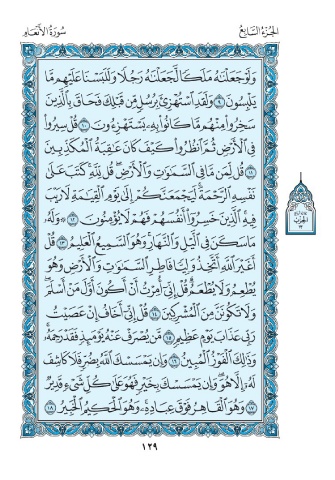 الجزء السابع
سورة الأنعام
وَلَوْ جَعَلْنَٰهُ مَلَكًا لَّجَعَلْنَٰهُ رَجُلًا وَلَلَبَسْنَا عَلَيْهِم مَّا
يَلْبِسُونَ ٩ وَلَقَدِ ٱسْتُهْزِئَ بِرُسُلٍ مِّن قَبْلِكَ فَحَاقَ بِٱلَّذِينَ
سَخِرُوا۟ مِنْهُم مَّا كَانُوا۟ بِهِۦ يَسْتَهْزِءُونَ ١٠ قُلْ سِيرُوا۟
فِى ٱلْأَرْضِ ثُمَّ ٱنظُرُوا۟ كَيْفَ كَانَ عَٰقِبَةُ ٱلْمُكَذِّبِينَ
١١ قُل لِّمَن مَّا فِى ٱلسَّمَٰوَٰتِ وَٱلْأَرْضِ ۖ قُل لِّلَّهِ ۚ كَتَبَ عَلَىٰ
نَفْسِهِ ٱلرَّحْمَةَ ۚ لَيَجْمَعَنَّكُمْ إِلَىٰ يَوْمِ ٱلْقِيَٰمَةِ لَا رَيْبَ
فِيهِ ۚ ٱلَّذِينَ خَسِرُوٓا۟ أَنفُسَهُمْ فَهُمْ لَا يُؤْمِنُونَ ١٢ ۞ وَلَهُۥ
مَا سَكَنَ فِى ٱلَّيْلِ وَٱلنَّهَارِ ۚ وَهُوَ ٱلسَّمِيعُ ٱلْعَلِيمُ ١٣ قُلْ
أَغَيْرَ ٱللَّهِ أَتَّخِذُ وَلِيًّا فَاطِرِ ٱلسَّمَٰوَٰتِ وَٱلْأَرْضِ وَهُوَ
يُطْعِمُ وَلَا يُطْعَمُ ۗ قُلْ إِنِّىٓ أُمِرْتُ أَنْ أَكُونَ أَوَّلَ مَنْ أَسْلَمَ ۖ
وَلَا تَكُونَنَّ مِنَ ٱلْمُشْرِكِينَ ١٤ قُلْ إِنِّىٓ أَخَافُ إِنْ عَصَيْتُ
رَبِّى عَذَابَ يَوْمٍ عَظِيمٍ ١٥ مَّن يُصْرَفْ عَنْهُ يَوْمَئِذٍ فَقَدْ رَحِمَهُۥ ۚ
وَذَٰلِكَ ٱلْفَوْزُ ٱلْمُبِينُ ١٦ وَإِن يَمْسَسْكَ ٱللَّهُ بِضُرٍّ فَلَا كَاشِفَ
لَهُۥٓ إِلَّا هُوَ ۖ وَإِن يَمْسَسْكَ بِخَيْرٍ فَهُوَ عَلَىٰ كُلِّ شَىْءٍ قَدِيرٌ
١٧ وَهُوَ ٱلْقَاهِرُ فَوْقَ عِبَادِهِۦ ۚ وَهُوَ ٱلْحَكِيمُ ٱلْخَبِيرُ ١٨
الحزب
١٢٩